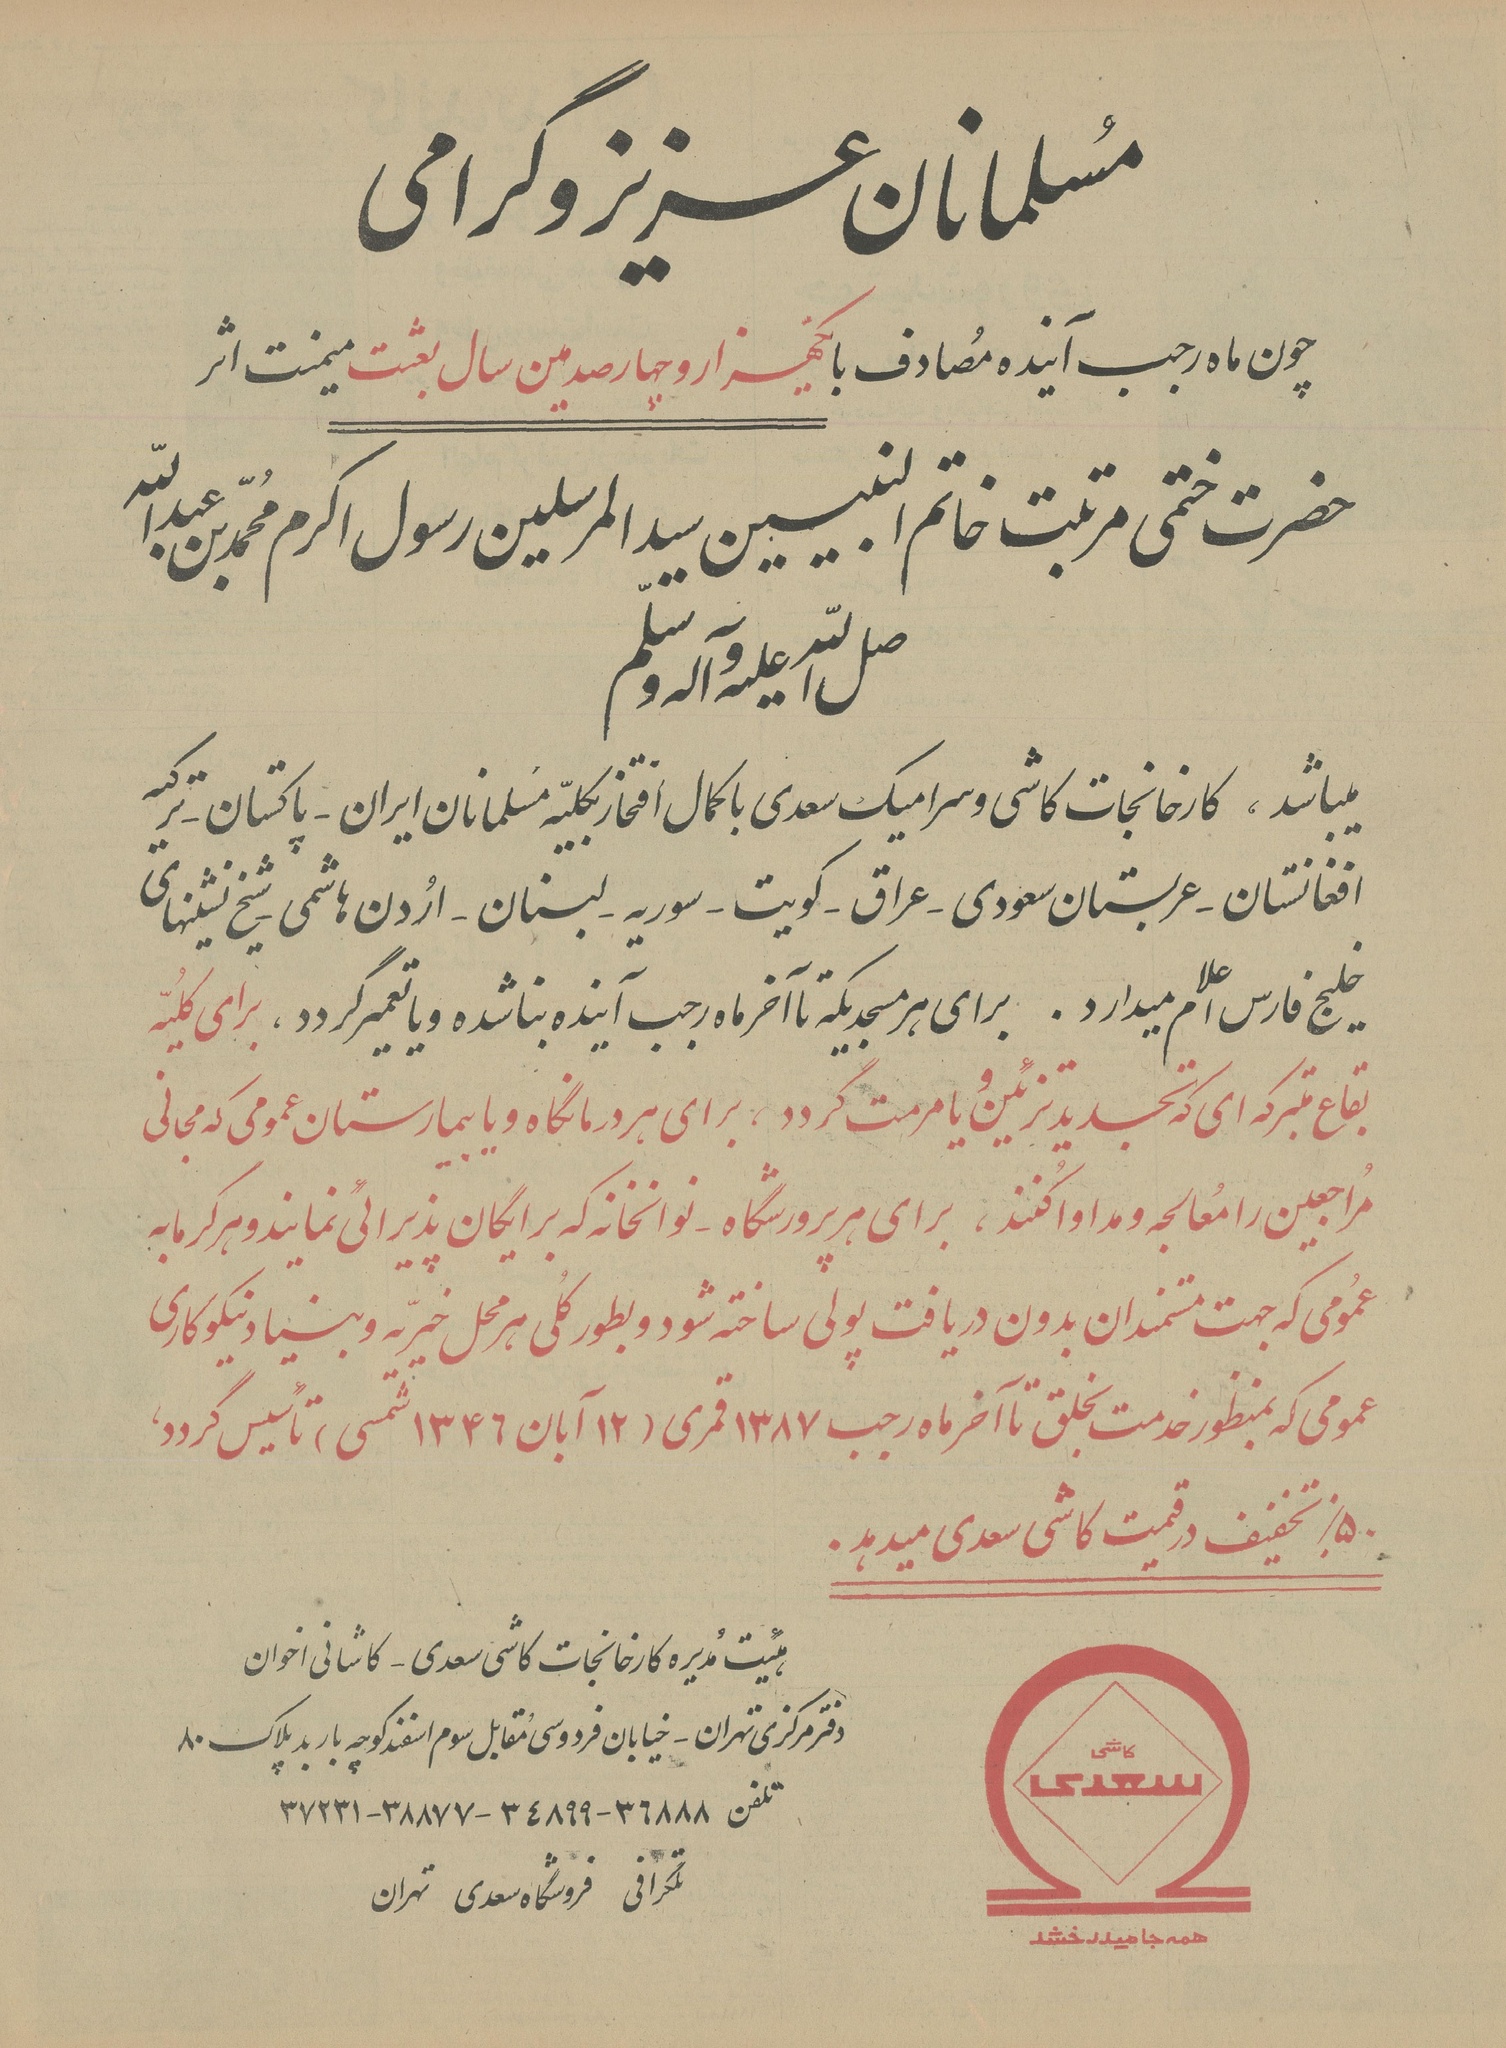 مُسلمانان عزیز و گرامی
چون ماه رجب آینده مُصادف با یکهزار و چهارصدمین سال بعثت میمنت اثر
حضرت ختمی مرتبت خاتم النبیین سید المرسلین رسول اکرم مُحمّد بن عبدالله
صل الله علیه و آله و سلّم
میباشد ، کارخانجات کاشی و سرامیک سعدی با کمال افتخار بکلیّه مُسلمانان ایران - پاکستان - ترکیه
افغانستان - عربستان سعودی - عراق - کویت - سوریه - لبنان - اُردن هاشمی - شیخ نشینهای
خلیج فارس اعلام میدارد . برای هر مسجدیکه تا آخر ماه رجب آینده بنا شده و یا تعمیر گردد ، برای کلیُّه
بقاع متبرکه ای که تجدید تزئین و یا مرمت گردد ، برای هر درمانگاه و یا بیمارستان عمومی که مجانی
مُراجعین را مُعالجه و مداوا کنند ، برای هر پرورشگاه - نوانخانه که برایگان پذیرائی نمایند و هر گرمابه
عمُومی که جهت مستمندان بدون دریافت پولی ساخته شود و بطور کُلی هر محل خیریّه و بنیاد نیکوکاری
عمومی که بمنظور خدمت بخلق تا آخر ماه رجب ۱۳۸۷ قمری ( ۱۲ آبان ۱۳۴۶ شمسی ) تأسیس گردد ،
۵۰٪ تخفیف در قیمت کاشی سعدی میدهد .
هیئت مُدیره کارخانجات کاشی سعدی - کاشانی اخوان
دفتر مرکزی تهران - خیابان فردوسی مُقابل سوم اسفند کوچه باربد پلاک ۸۰
تلفن ۳۶۸۸۸ - ۳۴۸۹۹ - ۳۸۸۷۷ - ۳۷۲۳۱
تلگرافی فروشگاه سعدی تهران
کاشی
سعدی
همه جا میدرخشد